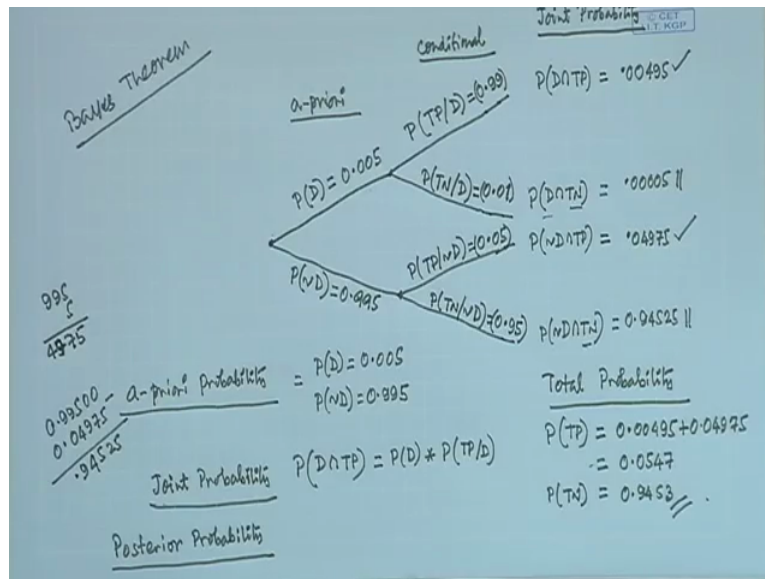 Bayes Theorem
a-priori
Conditional
Joint Probability
© CET
I.I.T. KGP
P(D) = 0.005
P(TP/D)=(0.99)
P(D∩TP) = .00495 ✓
P(TN/D)=(0.01)
P(D∩TN) = .00005 ||
P(ND)=0.995
P(TP/ND)=(0.05)
P(ND∩TP) = .04975 ✓
P(TN/ND)=(0.95)
P(ND∩TN) = 0.94525 ||
995
5
4975
0.99500 -
0.04975
.94525
a-priori Probability = P(D) = 0.005
P(ND) = 0.995
Joint Probability P(D∩TP) = P(D) * P(TP/D)
Posterior Probability
Total Probability
P(TP) = 0.00495+0.04975
= 0.0547
P(TN) = 0.9453 //.